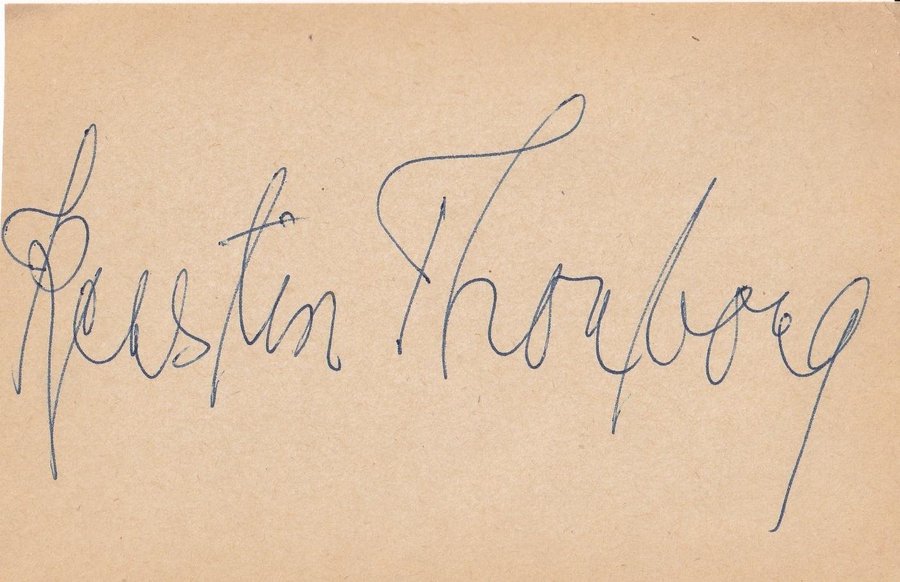 Kerstin Thorborg